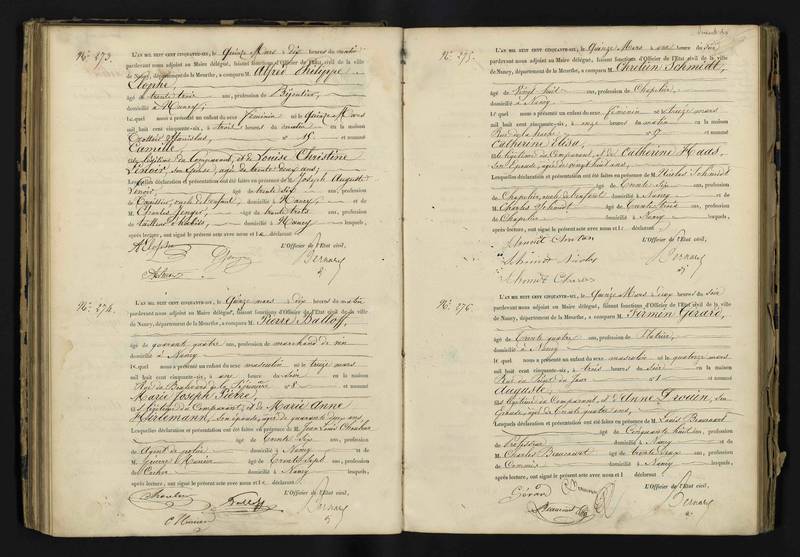 No. 273.
L'AN MIL HUIT CENT CINQUANTE-SIX, le quinze Mars dix heures du matin
pardevant nous adjoint au Maire délégué, faisant fonctions d'Officier de l'Etat civil de la ville
de Nancy, département de la Meurthe, a comparu M. Alfred Philippe
Clophe
âgé de trente trois ans, profession de Bijoutier,
domicilié à Nancy;
lequel nous a présenté un enfant du sexe féminin né le quinze Mars
mil huit cent cinquante-six, à trois heures du matin en la maison
Stanislas, no 15 et nommé
Camille,
fille légitime du Comparant, et de Louise Christine
Lenoir, son épouse, agée de trente deux ans;
Lesquelles déclaration et présentation ont été faites en présence de M. Joseph Auguste
Lenoir, âgé de trente six ans, profession
de oncle de l'enfant, domicilié à Nancy, et de
M. Charles âgé de trente trois ans, profession
de tailleur d'habits, domicilié à Nancy lesquels,
après lecture, ont signé le présent acte avec nous et le déclarant
L'Officier de l'Etat civil,
Bernard
No. 274.
L'AN MIL HUIT CENT CINQUANTE-SIX, le quinze mars dix heures du matin
pardevant nous adjoint au Maire délégué, faisant fonctions d'Officier de l'Etat civil de la ville
de Nancy, département de la Meurthe, a comparu M. Pierre Balloff,
âgé de quarante quatre ans, profession de marchand de vin
domicilié à Nancy
lequel nous a présenté un enfant du sexe masculin né le treize mars
mil huit cent cinquante-six, à onze heures du soir en la maison
Rue du Boulevard de la Pépinière no 8 et nommé
Marie Joseph Pierre,
fils légitime du Comparant, et de Marie Anne
son épouse, agée de quarante deux ans
Lesquelles déclaration et présentation ont été faites en présence de M. Jean Louis
âgé de trente six ans, profession
de Agent de police domicilié à Nancy et de
M. âgé de trente sept ans, profession
de Cocher domicilié à Nancy lesquels,
après lecture, ont signé le présent acte avec nous et le déclarant
L'Officier de l'Etat civil,
Balloff
Bernard
No. 275.
L'AN MIL HUIT CENT CINQUANTE-SIX, le quinze Mars une heure du soir
pardevant nous adjoint au Maire délégué, faisant fonctions d'Officier de l'Etat civil de la ville
de Nancy, département de la Meurthe, a comparu M. Chrétien Schmidt,
âgé de vingt huit ans, profession de Chapelier,
domicilié à Nancy
lequel nous a présenté un enfant du sexe féminin né le treize mars
mil huit cent cinquante-six, à onze heures du matin en la maison
Rue de la no 57 et nommé
Catherine Elisa,
fille légitime du Comparant, et de Catherine Haas,
son Epouse, agée de vingt huit ans,
Lesquelles déclaration et présentation ont été faites en présence de M. Nicolas Schmidt
âgé de trente six ans, profession
de Chapelier, oncle de l'enfant domicilié à Nancy et de
M. Charles Schmidt âgé de trente trois ans, profession
de Chapelier domicilié à Nancy lesquels,
après lecture, ont signé le présent acte avec nous et le déclarant
L'Officier de l'Etat civil,
Bernard
No. 276.
L'AN MIL HUIT CENT CINQUANTE-SIX, le quinze Mars deux heures du soir
pardevant nous adjoint au Maire délégué, faisant fonctions d'Officier de l'Etat civil de la ville
de Nancy, département de la Meurthe, a comparu M. Firmin Gérard,
âgé de trente quatre ans, profession de Notaire,
domicilié à Nancy
lequel nous a présenté un enfant du sexe masculin né le quatorze mars
mil huit cent cinquante-six, à trois heures du soir en la maison
Rue du Point du Jour no 1 et nommé
Auguste,
fils légitime du Comparant, et d'Anne Drouin, son
Epouse, agée de trente quatre ans,
Lesquelles déclaration et présentation ont été faites en présence de M. Louis
âgé de Cinquante huit ans, profession
de Professeur domicilié à Nancy et de
M. Charles âgé de trente deux ans, profession
de Commis domicilié à Nancy lesquels,
après lecture, ont signé le présent acte avec nous et le déclarant
L'Officier de l'Etat civil,
Gérard
Bernard